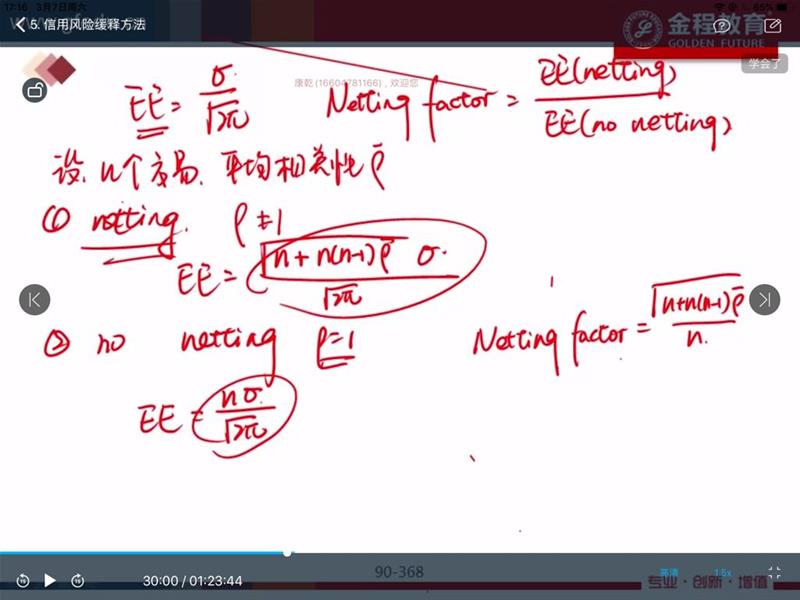 17:16 3月7日周六
65%
5. 信用风险缓释方法
金程教育
GOLDEN FUTURE
学会了
康乾 (16604781166) , 欢迎您
EE = σ/√2π
Netting factor = EE(netting)/EE(no netting)
设. n个交易. 平均相关性 ρ̄
① netting. ρ≠1
EE = √n+n(n-1)ρ̄ σ/√2π
② no netting ρ=1
EE = nσ/√2π
Netting factor = √n+n(n-1)ρ̄/n
90-368
30:00 / 01:23:44
高清
1.5x
专业·创新·增值